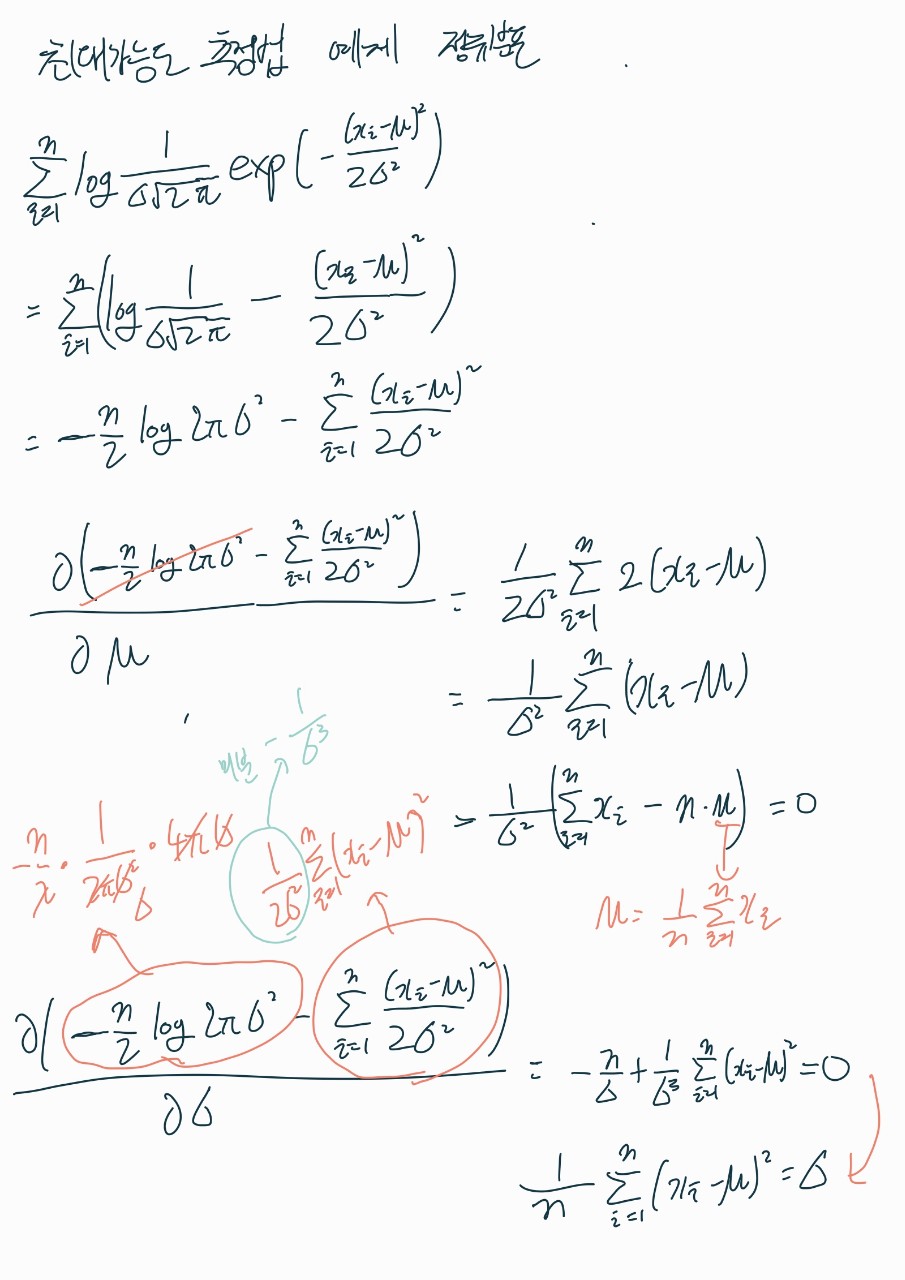 최대가능도 측정법 예제 정규분포
\sum_{i=1}^{n} \log \frac{1}{σ\sqrt{2π}} \exp\left(-\frac{(x_i-μ)^2}{2σ^2}\right)
= \sum_{i=1}^{n} \left(\log \frac{1}{σ\sqrt{2π}} - \frac{(x_i-μ)^2}{2σ^2}\right)
= -\frac{n}{2} \log 2πσ^2 - \sum_{i=1}^{n} \frac{(x_i-μ)^2}{2σ^2}
\frac{∂\left(-\frac{n}{2} \log 2πσ^2 - \sum_{i=1}^{n} \frac{(x_i-μ)^2}{2σ^2}\right)}{∂μ} = \frac{1}{2σ^2} \sum_{i=1}^{n} 2(x_i-μ)
= \frac{1}{σ^2} \sum_{i=1}^{n} (x_i-μ)
= \frac{1}{σ^2} \left(\sum_{i=1}^{n} x_i - n·μ\right) = 0
μ = \frac{1}{n} \sum_{i=1}^{n} x_i
미분 -\frac{1}{σ^3}
-\frac{n}{2} · \frac{1}{2πσ^2} · 4πσ
σ
\frac{1}{2σ^2} \sum_{i=1}^{n} (x_i-μ)^2
\frac{∂\left(-\frac{n}{2} \log 2πσ^2 - \sum_{i=1}^{n} \frac{(x_i-μ)^2}{2σ^2}\right)}{∂σ} = -\frac{n}{σ} + \frac{1}{σ^3} \sum_{i=1}^{n} (x_i-μ)^2 = 0
\frac{1}{n} \sum_{i=1}^{n} (x_i-μ)^2 = σ